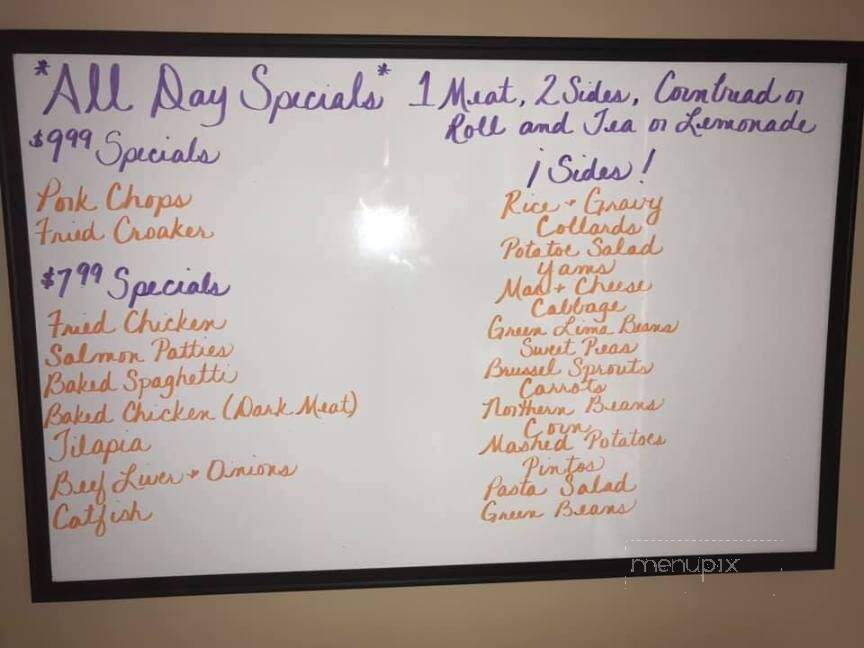 *All Day Specials*
1 Meat, 2 Sides, Cornbread or
Roll and Tea or Lemonade
$9.99 Specials
Pork Chops
Fried Croaker
$7.99 Specials
Fried Chicken
Salmon Patties
Baked Spaghetti
Baked Chicken (Dark Meat)
Tilapia
Beef Liver + Onions
Catfish
¡Sides!
Rice + Gravy
Collards
Potatoe Salad
Yams
Mac + Cheese
Cabbage
Green Lima Beans
Sweet Peas
Brussel Sprouts
Carrots
Northern Beans
Corn
Mashed Potatoes
Pintos
Pasta Salad
Green Beans
menupix